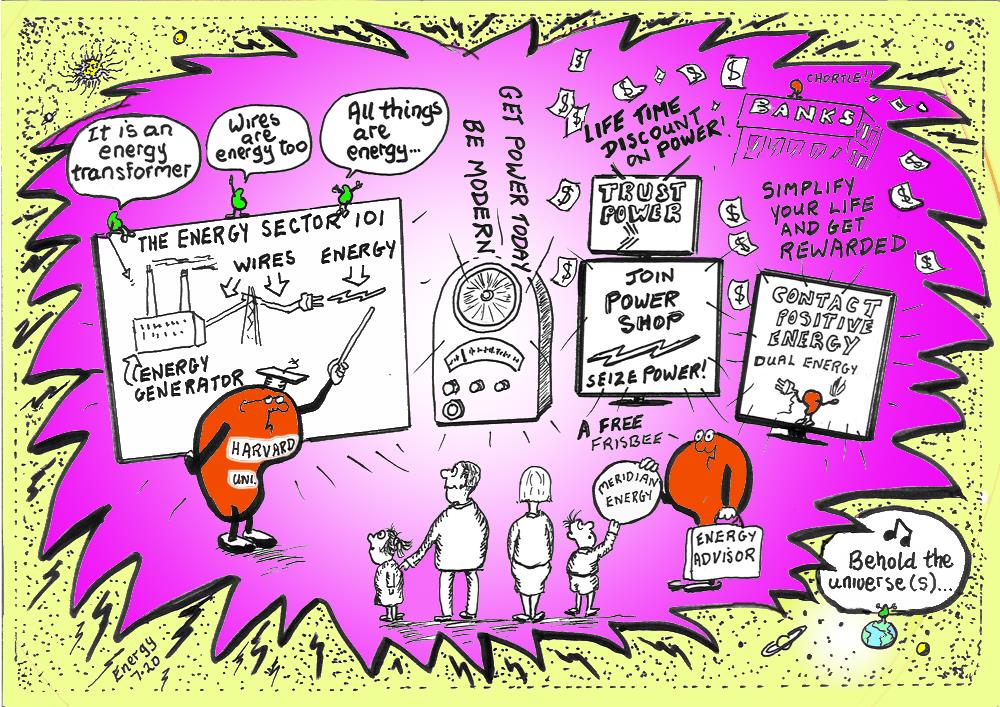 It is an
energy
transformer
Wires
are
energy too
All things
are
energy...
THE ENERGY SECTOR 101
WIRES
ENERGY
ENERGY
GENERATOR
HARVARD
UNI.
GET POWER TODAY
BE MODERN
LIFE TIME
DISCOUNT
ON POWER!
TRUST
POWER
JOIN
POWER
SHOP
SEIZE POWER!
CHORTLE!!
BANKS
$
$
$
$
$
$
$
$
$
$
$
$
$
SIMPLIFY
YOUR LIFE
AND GET
REWARDED
CONTACT
POSITIVE
ENERGY
DUAL ENERGY
A FREE
FRISBEE
MERIDIAN
ENERGY
ENERGY
ADVISOR
Behold the
universe(s)...
Energy
7.20